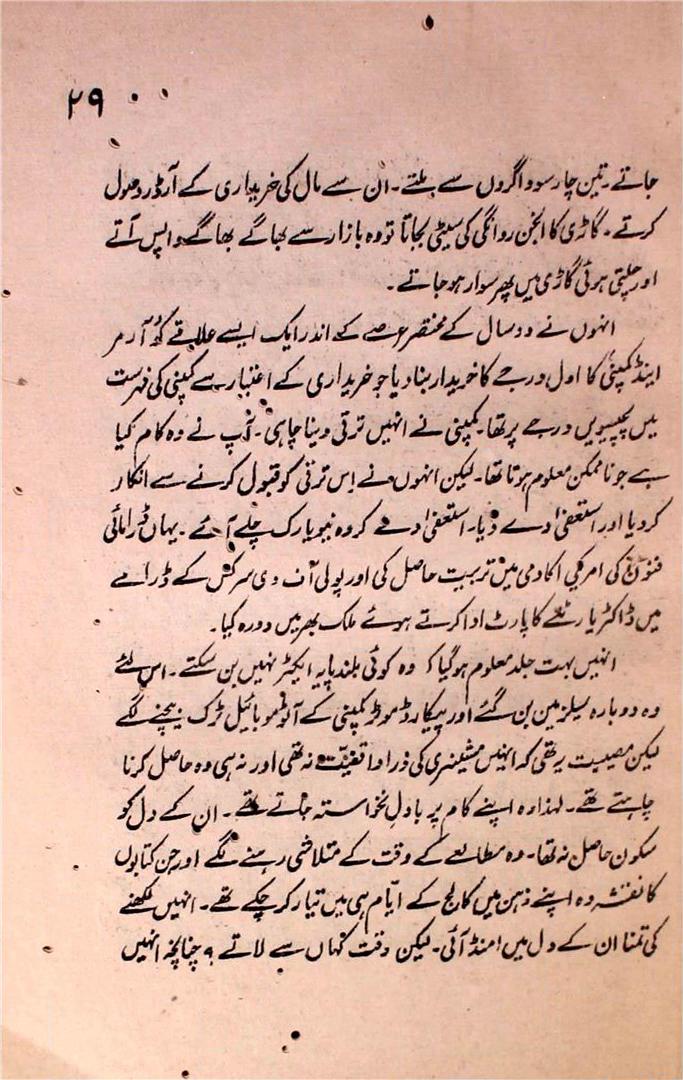 ۲۹
جاتے۔ تین چار سوداگروں سے ملتے۔ ان سے مال کی خریداری کے آرڈر وصول
کرتے۔ گاڑی کا انجن روانگی کی سیٹی بجاتا تو وہ بازار سے بھاگے بھاگے واپس آتے
اور چلتی ہوئی گاڑی میں پھر سوار ہو جاتے۔
انہوں نے دو سال کے مختصر عرصے کے اندر ایک ایسے علاقے کو آرمر
اینڈ کمپنی کا اول درجے کا خریدار بنا دیا جو خریداری کے اعتبار سے کمپنی کی فہرست
میں پچیسویں درجے پر تھا۔ کمپنی نے انہیں ترقی دینا چاہی۔ آپ نے وہ کام کیا
ہے جو ناممکن معلوم ہوتا تھا۔ لیکن انہوں نے اس ترقی کو قبول کرنے سے انکار
کر دیا اور استعفیٰ دے دیا۔ استعفیٰ دے کر وہ نیویارک چلے آئے۔ یہاں ڈرامائی
فنون کی امریکی اکادمی میں تربیت حاصل کی اور پولی آف دی سرکس کے ڈرامے
میں ڈاکٹر ہارٹلے کا پارٹ ادا کرتے ہوئے ملک بھر میں دورہ کیا۔
انہیں بہت جلد معلوم ہو گیا کہ وہ کوئی بلند پایہ ایکٹر نہیں بن سکتے۔ اس لئے
وہ دوبارہ سیلز مین بن گئے اور پیکارڈ موٹر کمپنی کے آٹو موبائیل ٹرک بیچنے لگے
لیکن مصیبت یہ تھی کہ انہیں مشینری کی ذرا واقفیت نہ تھی اور نہ ہی وہ حاصل کرنا
چاہتے تھے۔ لہٰذا وہ اپنے کام پر بادلِ نخواستہ جاتے تھے۔ ان کے دل کو
سکون حاصل نہ تھا۔ وہ مطالعے کے وقت کے متلاشی رہنے لگے اور جن کتابوں
کا نقشہ وہ اپنے ذہن میں کالج کے ایّام ہی میں تیار کر چکے تھے۔ انہیں لکھنے
کی تمنا ان کے دل میں امنڈ آئی۔ لیکن وقت کہاں سے لاتے ؟ چنانچہ انہیں